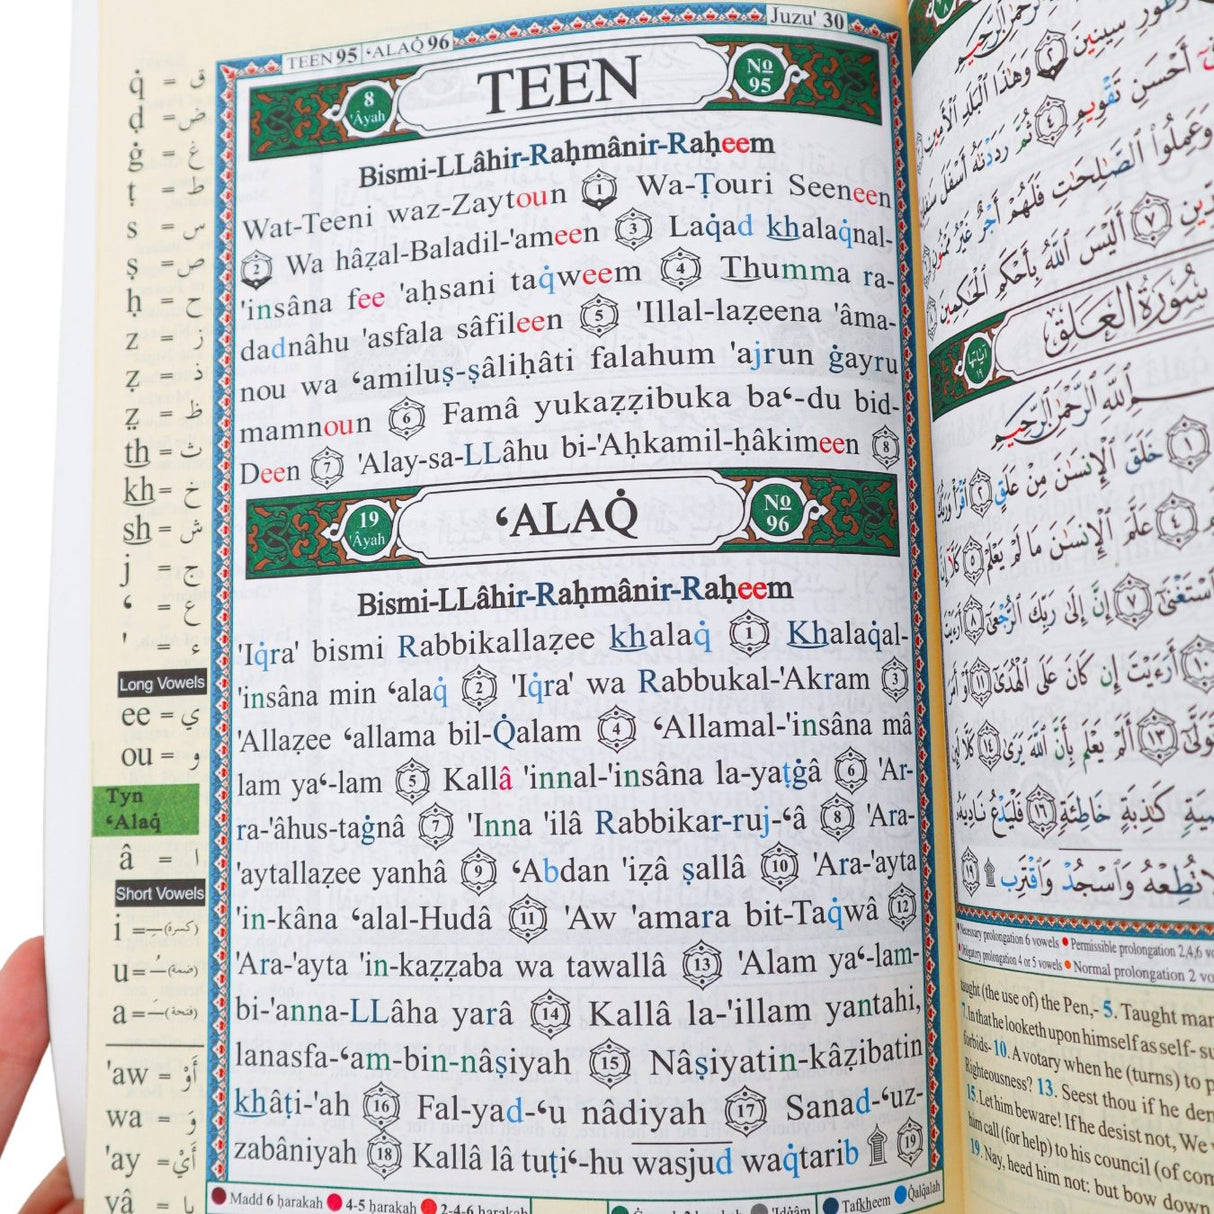 TEEN 95 ‘ALAQ̇ 96
Juzu' 30
8 'Âyah
TEEN
No 95
Bismi-LLâhir-Raḥmânir-Raḥeem
Wat-Teeni waz-Zaytoun 1 Wa-Ṭouri Seeneen
2 Wa hâẓal-Baladil-'ameen 3 Laq̇ad khalaq̇nal-
'insâna fee 'aḥsani taq̇weem 4 Thumma ra-
dadnâhu 'asfala sâfileen 5 'Illal-laẓeena 'âma-
nou wa ‘amiluṣ-ṣâliḥâti falahum 'ajrun ġayru
mamnoun 6 Famâ yukaẓẓibuka ba‘-du bid-
Deen 7 'Alay-sa-LLâhu bi-'Aḥkamil-ḥâkimeen 8
19 'Âyah
‘ALAQ̇
No 96
Bismi-LLâhir-Raḥmânir-Raḥeem
'Iq̇ra' bismi Rabbikallaẓee khalaq̇ 1 Khalaq̇al-
'insâna min ‘alaq̇ 2 'Iq̇ra' wa Rabbukal-'Akram 3
'Allaẓee ‘allama bil-Q̇alam 4 ‘Allamal-'insâna mâ
lam ya‘-lam 5 Kallâ 'innal-'insâna la-yaṭġâ 6 'Ar-
ra-'âhus-taġnâ 7 'Inna 'ilâ Rabbikar-ruj-‘â 8 'Ara-
'aytallaẓee yanhâ 9 ‘Abdan 'iẓâ ṣallâ 10 'Ara-'ayta
'in-kâna ‘alal-Hudâ 11 'Aw 'amara bit-Taq̇wâ 12
'Ara-'ayta 'in-kaẓẓaba wa tawallâ 13 'Alam ya‘-lam-
bi-'anna-LLâha yarâ 14 Kallâ la-'illam yantahi,
lanasfa-‘am-bin-nâṣiyah 15 Nâṣiyatin-kâẓibatin
khâṭi-'ah 16 Fal-yad-‘u nâdiyah 17 Sanad-‘uz-
zabâniyah 18 Kallâ lâ tuṭi‘-hu wasjud waq̇tarib ۩ 19
Madd 6 ḥarakah 4-5 ḥarakah 2-4-6 ḥarakah
'Idġâm Tafkheem Q̇alq̇alah
q̇ = ق
ḍ = ض
ġ = غ
ṭ = ط
s = س
ṣ = ص
ḥ = ح
z = ز
ẓ = ذ
ẓ̤ = ظ
th = ث
kh = خ
sh = ش
j = ج
‘ = ع
' = ء
Long Vowels
ee = ي
ou = و
Tyn
‘Alaq̇
â = ا
Short Vowels
i = (كسرة)
u = (ضمة)
a = (فتحة)
'aw = أَوْ
wa = وَ
'ay = أَيْ
yâ = يا
طُورِ سِينِينَ ٢ وَهَٰذَا ٱلْبَلَدِ ٱلْأَمِينِ
أَحْسَنِ تَقْوِيمٍ ٤ ثُمَّ رَدَدْنَٰهُ أَسْفَلَ
وَعَمِلُوا۟ ٱلصَّٰلِحَٰتِ فَلَهُمْ أَجْرٌ غَيْرُ مَمْنُونٍ
ٱلدِّينِ ٧ أَلَيْسَ ٱللَّهُ بِأَحْكَمِ ٱلْحَٰكِمِينَ
سُورَةُ الْعَلَقِ
آياتها ١٩
ٱللَّهِ ٱلرَّحْمَٰنِ ٱلرَّحِيمِ
١ خَلَقَ ٱلْإِنسَٰنَ مِنْ عَلَقٍ ٢ ٱقْرَأْ وَرَبُّكَ
٤ عَلَّمَ ٱلْإِنسَٰنَ مَا لَمْ يَعْلَمْ ٥ كَلَّآ إِنَّ
ٱسْتَغْنَىٰٓ ٧ إِنَّ إِلَىٰ رَبِّكَ ٱلرُّجْعَىٰٓ ٨ أَرَءَيْتَ
١٠ أَرَءَيْتَ إِن كَانَ عَلَى ٱلْهُدَىٰٓ ١١ أَوْ أَمَرَ
وَتَوَلَّىٰٓ ١٣ أَلَمْ يَعْلَم بِأَنَّ ٱللَّهَ يَرَىٰ ١٤ كَلَّا
كَٰذِبَةٍ خَاطِئَةٍ ١٦ فَلْيَدْعُ نَادِيَهُۥ
لَا تُطِعْهُ وَٱسْجُدْ وَٱقْتَرِب ۩ ١٩
Necessary prolongation 6 vowels Permissible prolongation 2,4,6
Obligatory prolongation 4 or 5 vowels Normal prolongation 2
taught (the use of) the Pen,- 5. Taught
7. In that he looketh upon himself as self-
forbids- 10. A votary when he (turns) to
Righteousness? 13. Seest thou if he
15. Let him beware! If he desist not, We
him call (for help) to his council (of
19. Nay, heed him not: but bow down